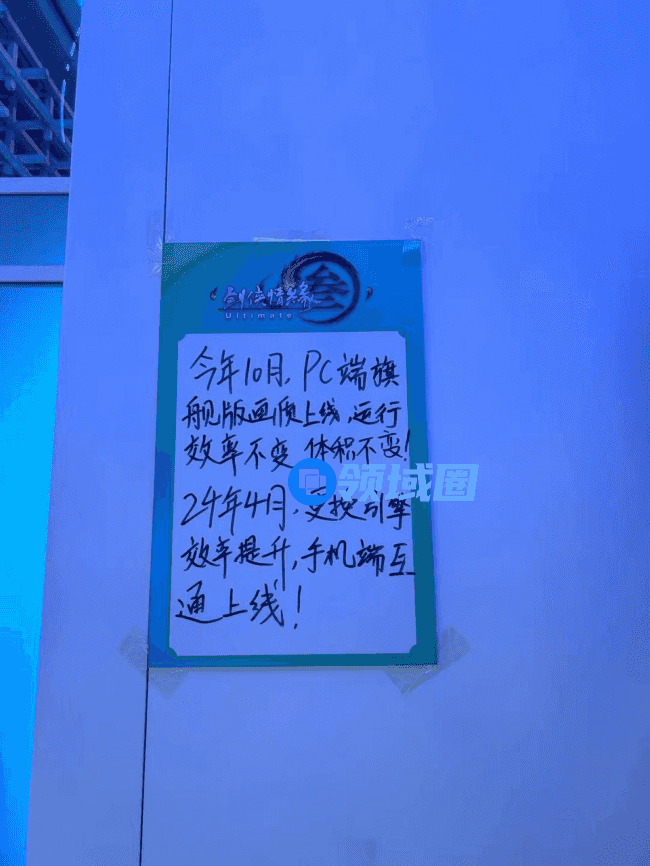 剑侠情缘 叁
Ultimate
今年10月，PC端旗
舰版画质上线，运行
效率不变 体积不变！
领域圈
24年4月，更换引擎
效率提升，手机端互
通上线！